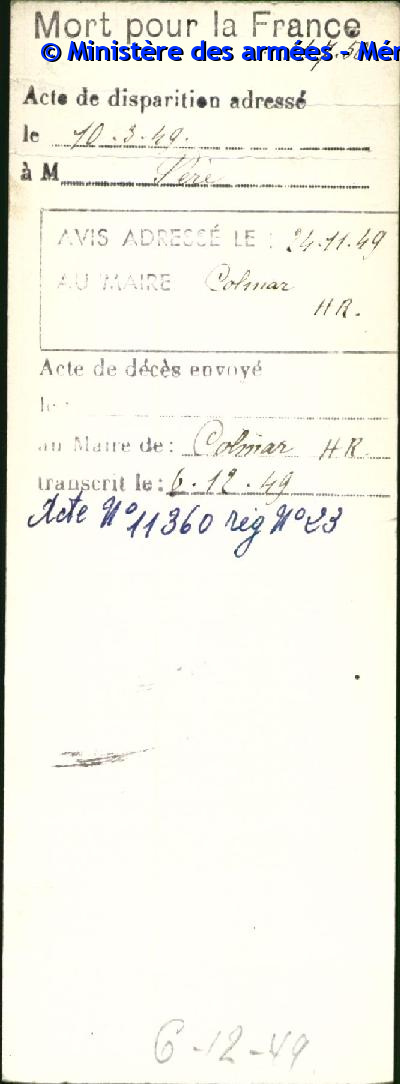 Mort pour la France
© Ministère des armées - Mém
Acte de disparition adressé
le 10.3.49.
à M Père
AVIS ADRESSÉ LE : 24.11.49
AU MAIRE Colmar
HR.
Acte de décès envoyé
le :
au Maire de : Colmar HR.
transcrit le : 6.12.49
Acte N° 11360 reg N° 23
6-12-49